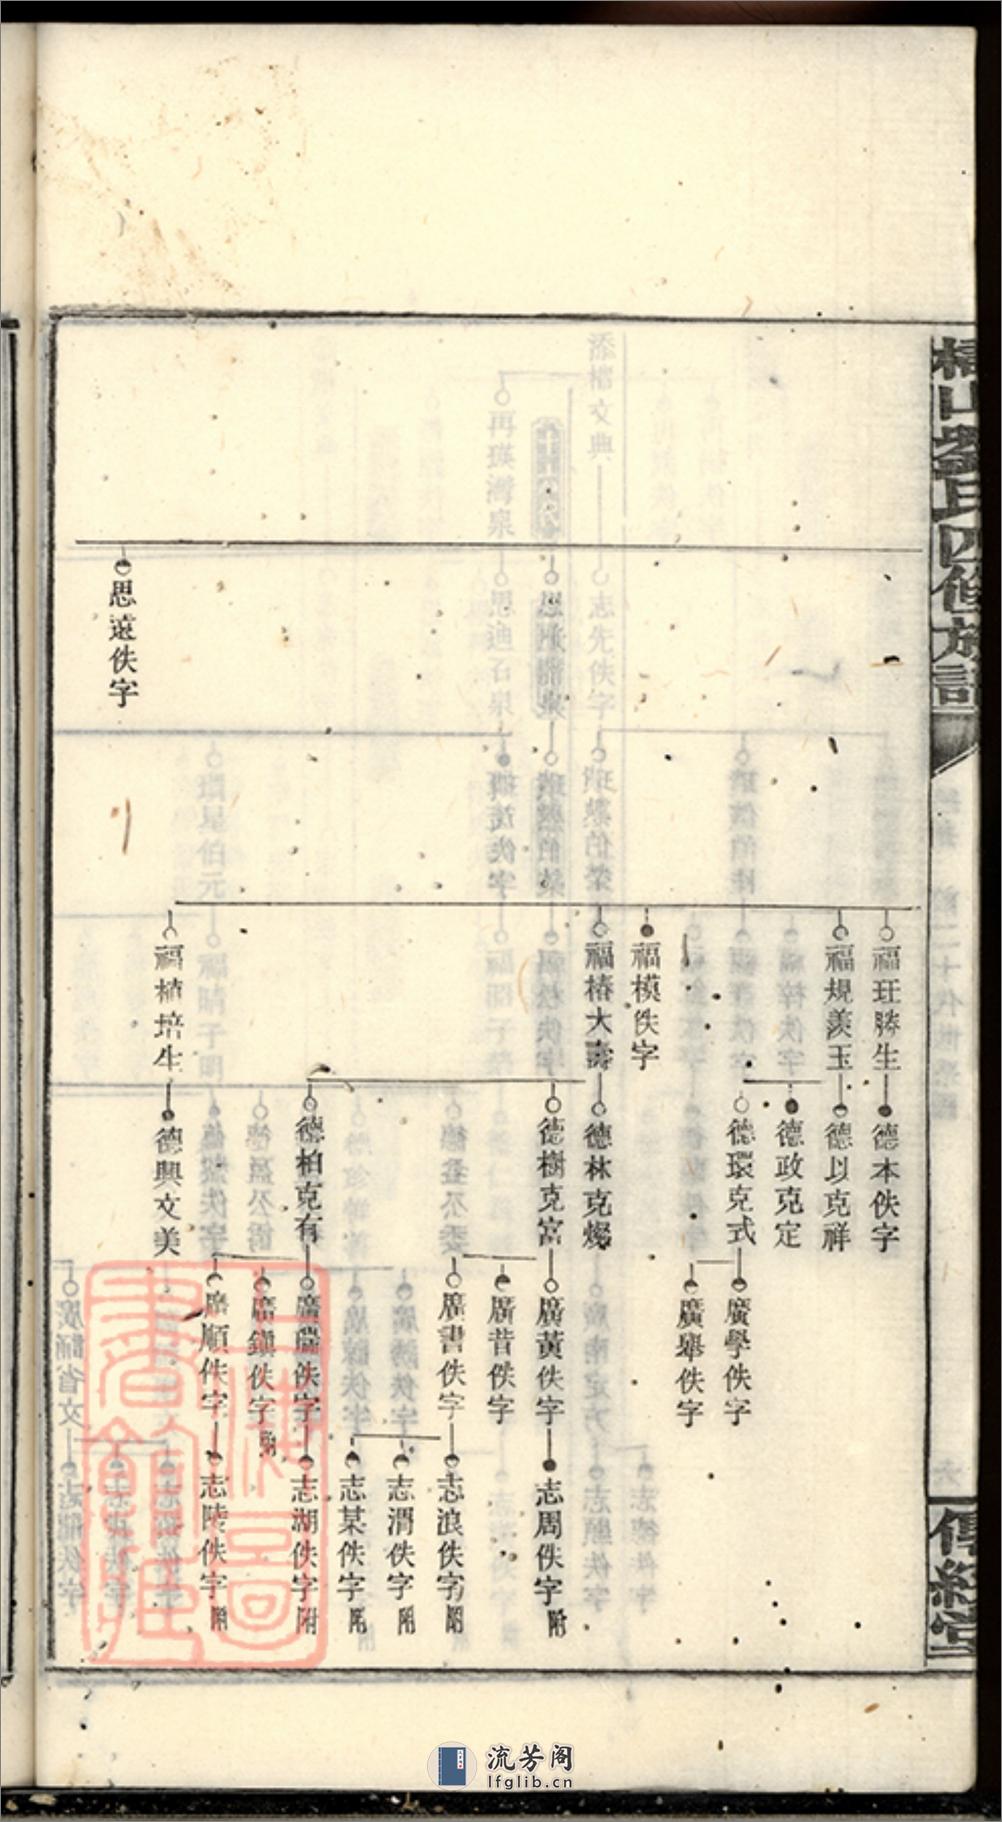 橋山劉氏四修族譜
傳經堂
福玨勝生
德本佚字
福規羨玉
德以克祥
德政克定
德環克式
廣學佚字
廣舉佚字
福模佚字
福椿大壽
德林克燦
德樹克富
廣黃佚字
志周佚字 附
廣昔佚字
廣書佚字
志浪佚字 附
志渭佚字 附
志某佚字 附
德柏克有
廣瑞佚字
志湖佚字 附
廣鎮佚字 附
廣順佚字
志陵佚字 附
福植培生
德興文美
思遠佚字
上海圖書館藏
流芳阁
lfglib.cn